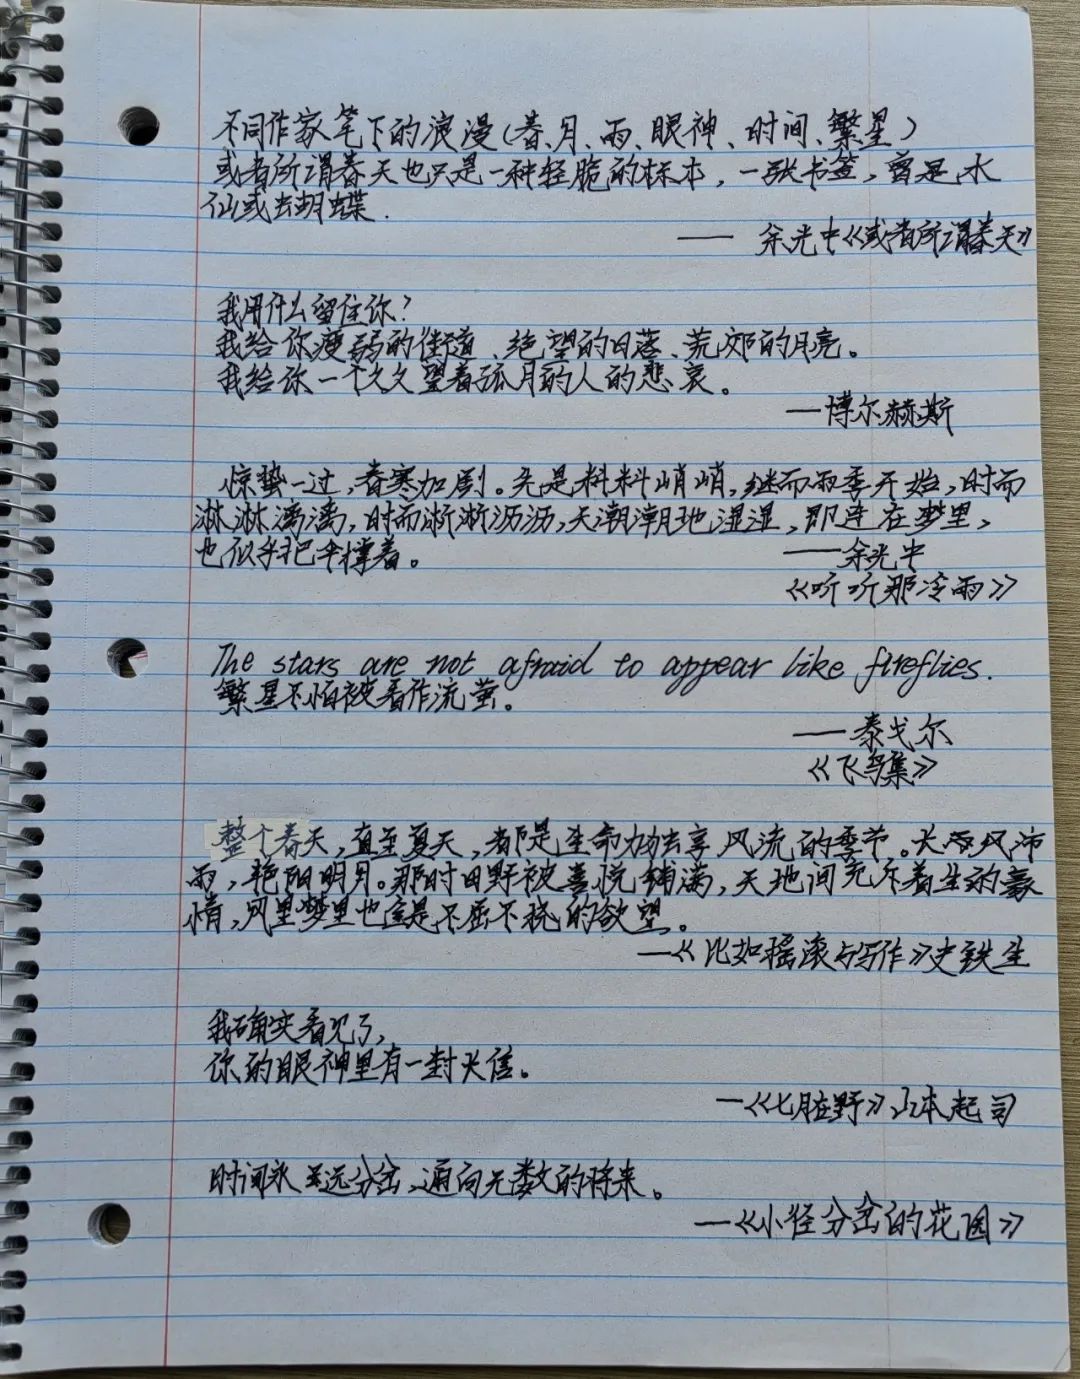 不同作家笔下的浪漫(春、月、雨、眼神、时间、繁星)
或者所谓春天也只是一种轻脆的标本，一张书签，曾是水
仙或去蝴蝶.
—— 余光中《或者所谓春天》
我用什么留住你?
我给你瘦弱的街道、绝望的日落、荒郊的月亮。
我给你一个久久望着孤月的人的悲哀。
—博尔赫斯
惊蛰一过，春寒加剧。先是料料峭峭，继而雨季开始，时而
淋淋漓漓，时而淅淅沥沥，天潮潮地湿湿，即连在梦里，
也似乎把伞撑着。
——余光中
《听听那冷雨》
The stars are not afraid to appear like fireflies.
繁星不怕被看作流萤。
——泰戈尔
《飞鸟集》
整个春天，直至夏天，都是生命力独享风流的季节。长风沛
雨，艳阳明月。那时田野被喜悦铺满，天地间充斥着生的豪
情，风里梦里也全是不屈不挠的欲望。
—《比如摇滚与写作》史铁生
我确实看见了，
你的眼神里有一封长信。
—《七月在野》山本起司
时间永远分岔，通向无数的将来。
—《小径分岔的花园》